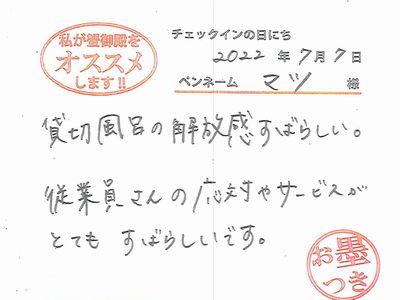 私が蟹御殿を
オススメ
します!!
チェックインの日にち
2022年7月7日
ペンネーム マツ 様
貸切風呂の解放感すばらしい。
従業員さんの応対やサービスが
とても すばらしいです。
お墨
つき